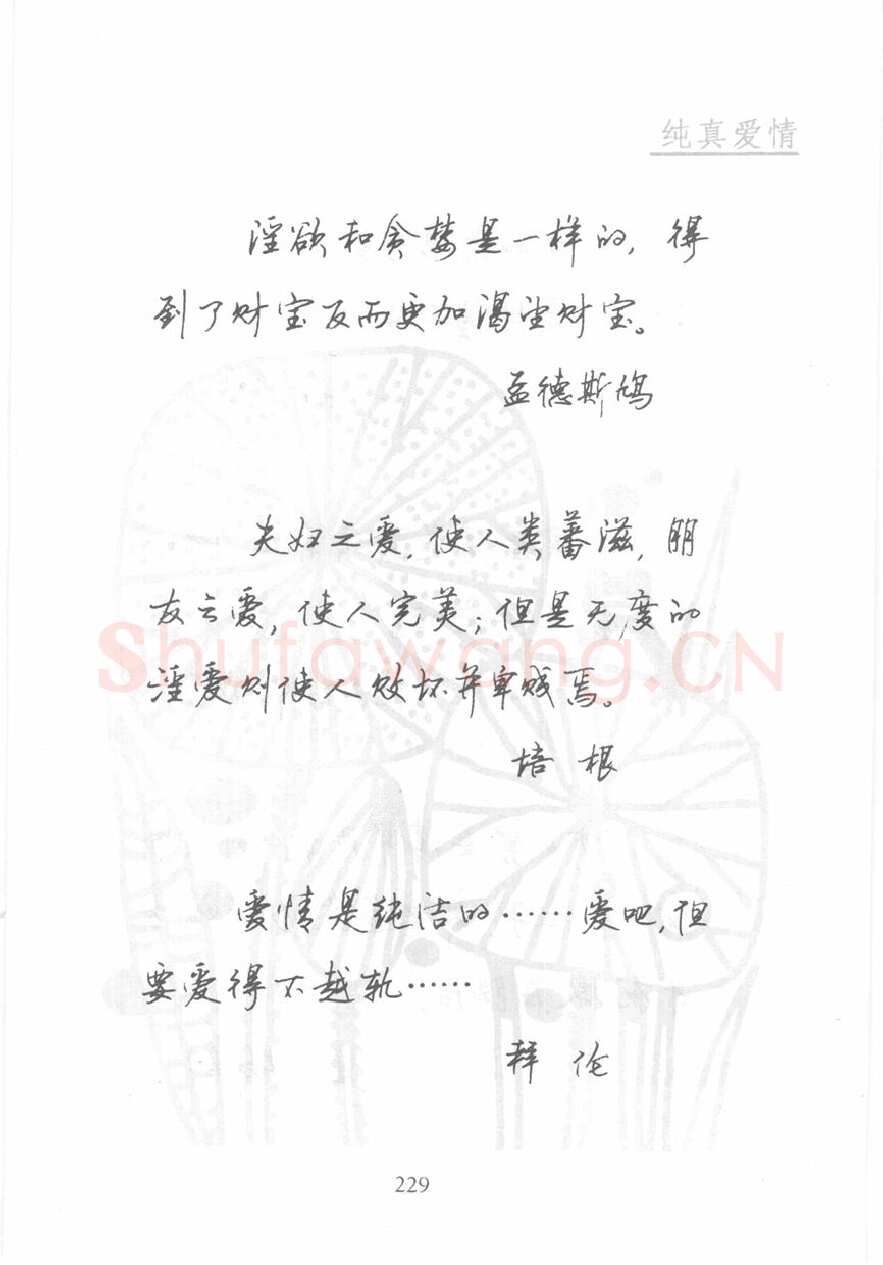 纯真爱情
淫欲和贪婪是一样的，得
到了财宝反而更加渴望财宝。
孟德斯鸠
夫妇之爱，使人类蕃滋，朋
友之爱，使人完美；但是无度的
淫爱则使人败坏并卑贱焉。
Shufawang.CN
培根
爱情是纯洁的……爱吧，但
要爱得不越轨……
拜伦
229